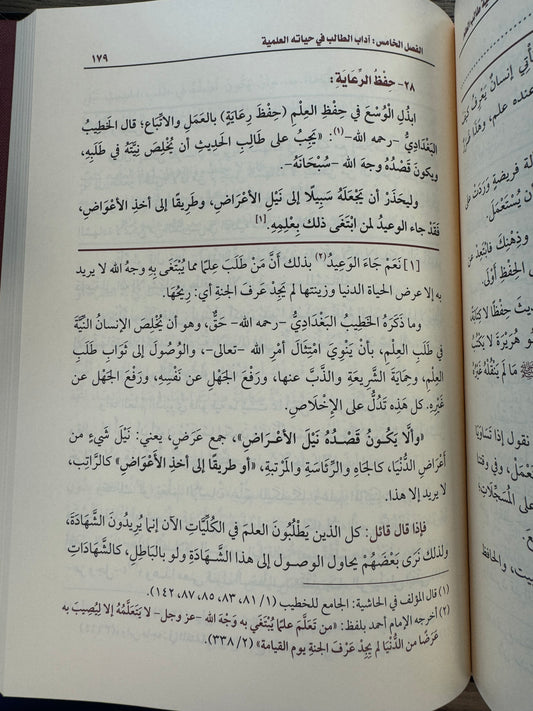 الفصل الخامس: آداب الطالب في حياته العلمية
١٧٩
٢٨- حِفْظُ الرِّعايَةِ:
ابذُلِ الوُسْعَ في حِفْظِ العِلْمِ (حِفْظَ رِعَايَةٍ) بالعَمَلِ والاتِّباعِ؛ قال الخَطِيبُ
البَغْدَادِيُّ -رحمه الله-(١): «يَجِبُ على طَالِبِ الحَدِيثِ أن يُخْلِصَ نِيَّتَهُ في طَلَبِهِ،
ويكونَ قَصْدُهُ وجهَ الله -سُبْحَانَهُ-.
وليحَذَرْ أن يَجْعَلَهُ سَبِيلًا إلى نَيْلِ الأَعْرَاضِ، وطَرِيقًا إلى أخذِ الأَعْوَاضِ،
فَقَدْ جاء الوعيدُ لمن ابْتَغَى ذلك بِعِلْمِهِ.[١]
[١] نَعَمْ جَاءَ الوَعِيدُ(٢) بذلك أَنَّ مَنْ طَلَبَ عِلمًا مما يُبْتَغَى بِهِ وجهُ الله لا يريد
به إلا عرض الحياة الدنيا وزينتها لم يَجِدْ عَرفَ الجنةِ أي: رِيحُهَا.
وما ذَكَرَهُ الخَطِيبُ البَغْدَادِيُّ -رحمه الله- حَقٌّ، وهو أن يُخْلِصَ الإنسانُ النِّيَّةَ
في طَلَبِ العِلْمِ، بأنْ يَنْوِيَ امْتِثَالَ أمرِ الله -تعالى-، والوُصُولَ إلى ثوابِ طَلَبِ
العِلْمِ، وحِمَايَةَ الشَّرِيعَةِ والذَّبَّ عنها، ورَفْعَ الجَهْلِ عن نَفْسِهِ، ورَفْعَ الجَهْل عن
غَيْرِهِ. كل هَذِهِ تَدُلُّ على الإِخْلَاصِ.
«وألَّا يَكُـونُ قَصْـدُهُ نَيْلَ الأَعْـرَاضِ»، جمع عَرَضٍ، يعني: نَيْلَ شَيءٍ من
أَعْرَاضِ الدُّنْيَا، كالجَاهِ والرِّئَاسَةِ والمَرْتبةِ، «أو طريقًا إلى أخذِ الأَعْوَاضِ» كالرَّاتِبِ،
لا يريد إلا هذا.
فإذا قال قائل: كل الذين يَطْلُبُونَ العلمَ في الكُلِّيَّاتِ الآن إنما يُرِيدُونَ الشَّهَادَةَ،
ولذلك نَرَى بَعْضَهُمْ يحاول الوصول إلى هذا الشَّهادَةِ ولو بالبَاطِلِ، كالشَّهَادَاتِ
(١) قال المؤلف في الحاشية: الجامع للخطيب (١/ ٨١، ٨٣، ٨٥، ٨٧، ١٤٢).
(٢) أخرجه الإمام أحمد بلفظ: «من تَعَلَّمَ علمًا يُبْتَغي به وَجْهَ الله -عز وجل- لا يَتَعَلَّمُهُ إلا لِيُصِيبَ به
عَرَضًا من الدُّنْيَا لم يَجِدْ عَرْفَ الجنةِ يوم القيامة» (٢/ ٣٣٨).